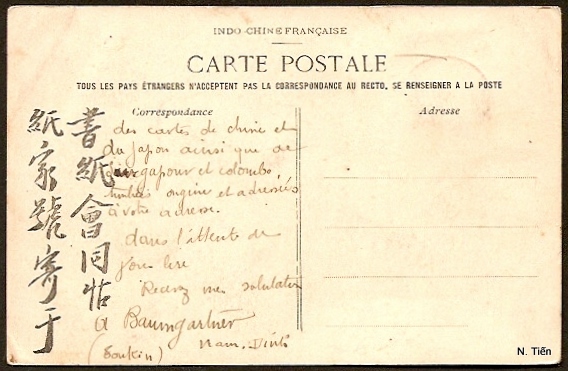 INDO-CHINE FRANÇAISE
CARTE POSTALE
TOUS LES PAYS ÉTRANGERS N'ACCEPTENT PAS LA CORRESPONDANCE AU RECTO. SE RENSEIGNER A LA POSTE
Correspondance
Adresse
des cartes de chine et
du Japon ainsi que de
Singapour et colombo,
timbres origine et adressés
à votre adresse.
dans l'attente de
vous lire
Recevez mes salutations
Baumgartner
Nam. Dinh
(Tonkin)
書紙會同
紙家號寄于
N. Tiến